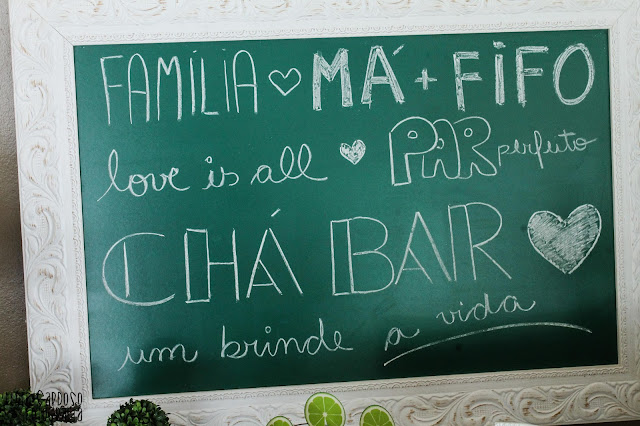 FAMÍLIA ♡ MÁ + FIFO
love is all ♥ PAR perfeito
CHÁ BAR ♥
um brinde a vida